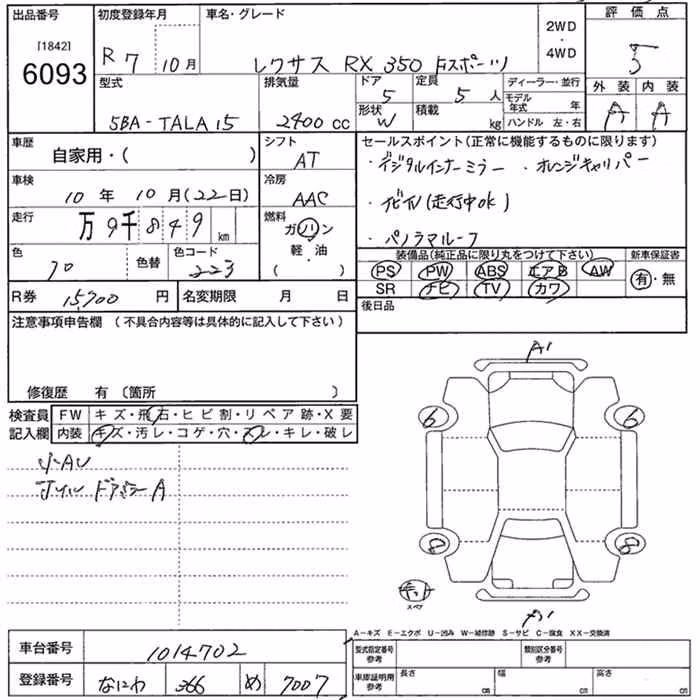 出品番号 初度登録年月 車名・グレード 2WD ・ 4WD 評価点
［1842］
6093 R7 10月 レクサス RX 350 Fスポーツ 5
型式 排気量 ドア 5 定員 5人 ディーラー・並行 外装 内装
5BA-TALA15 2400 cc 形状 W 積載 kg モデル年式 年 A A
ハンドル 左・右
車歴 シフト セールスポイント(正常に機能するものに限ります)
自家用・( ) AT ・デジタルインナーミラー ・オレンジキャリパー
車検 冷房
10年 10月(22日) AAC ・ナビTV(走行中ok)
走行 燃料
万 9千 8 4 9 km ガソリン ・パノラマルーフ
色 色替 色コード 軽・油 装備品(純正品に限り丸をつけて下さい) 新車保証書
クロ 223 ( ) PS PW ABS エアB AW 有・無
R券 15,700 円 名変期限 月 日 SR ナビ TV カワ
注意事項申告欄 (不具合内容等は具体的に記入して下さい) 後日品
修復歴 有〔箇所 〕
検査員 FW キズ・飛石・ヒビ割・リペア跡・X要
記入欄 内装 キズ・汚レ・コゲ・穴・スレ・キレ・破レ
A1
6 6
8 8
スペア
A1
A－キズ E－エクボ U－凹み W－補修跡 S－サビ C－腐食 XX－交換済
車台番号 1014702 型式指定番号 参考 類別区分番号 参考
登録番号 なにわ 366 め 7007 車庫証明用 参考 長さ cm 幅 cm 高さ cm